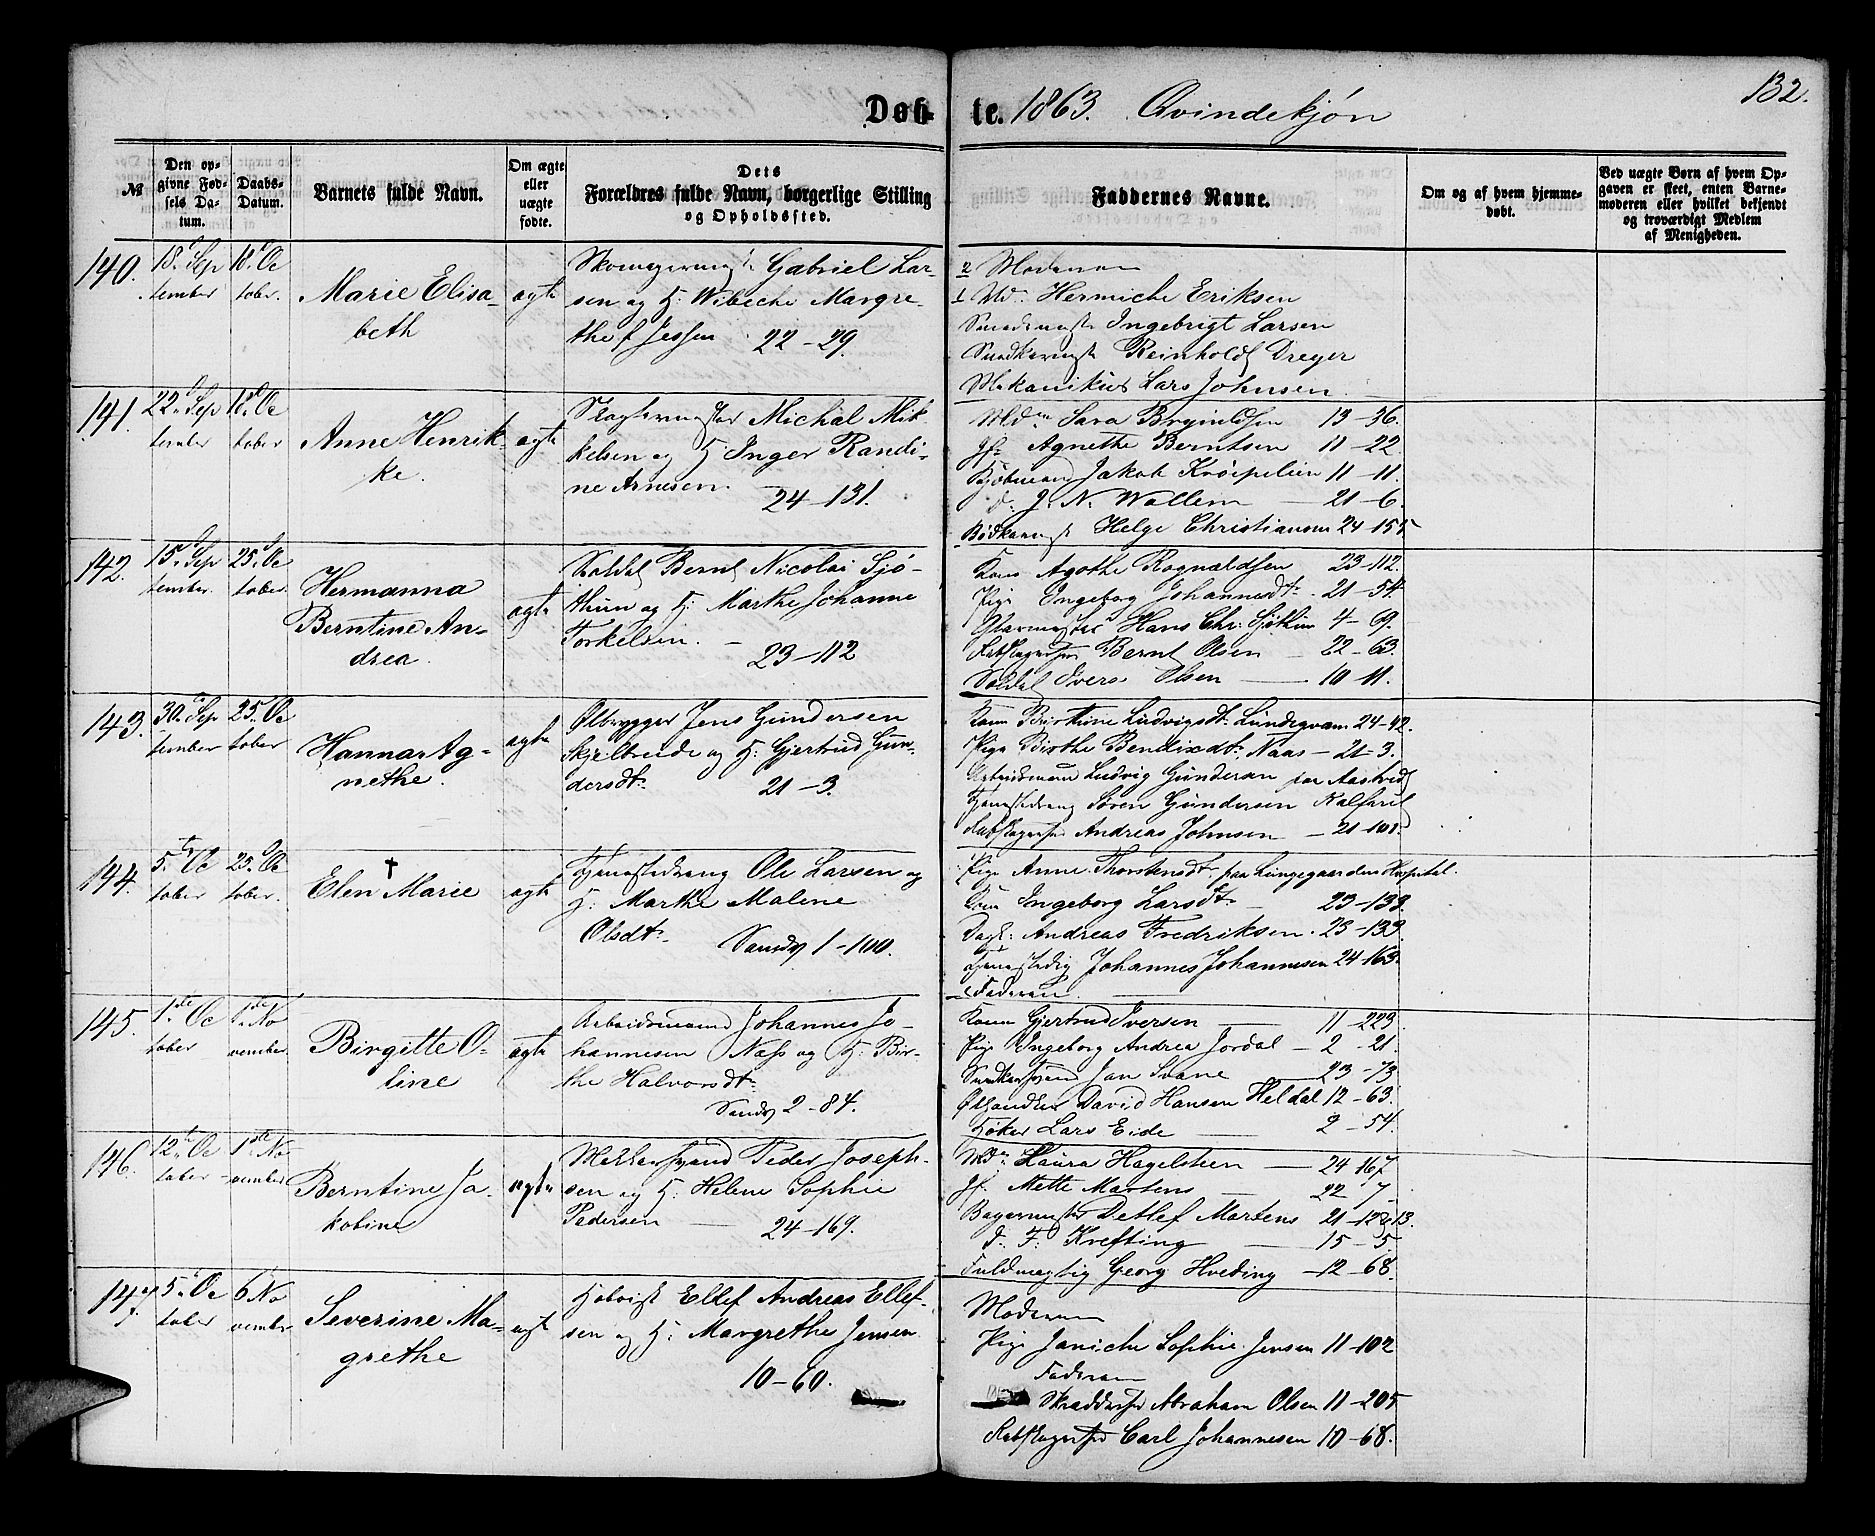 Døb-
te. 1863. Qvindekjøn
132.
№
Den op-
givne Fød-
sels Da-
tum.
Daabs-
Datum.
Barnets fulde Navn.
Om ægte
eller
uægte
fødte.
Dets
Forældres fulde Navn, borgerlige Stilling
og Opholdssted.
Faddernes Navne.
Om og af hvem hjemme-
døbt.
Ved uægte Børn af hvem Op-
gaven er skeet, enten Barne-
moderen eller hvilket bekjendt
og troværdigt Medlem
af Menigheden.
140.
18. Sep
tember
18. Oc
tober.
Marie Elisa-
beth
ægte
Skomagermst Gabriel Lar-
sen og H: Wibecke Margre-
the f Jessen 22-29.
2 Moderen
1 Md. Hermiche Eriksen
Smedemst Ingebrigt Larsen
Snedkermst Reinholdt Dreyer
Mekanikus Lars Johnsen
141.
22. Sep
tember
18. Oc
tober
Anne Henrik-
ke.
ægte
Slagtermester Michal Mik-
kelsen og H: Inger Randi-
ne Arnesen. 24-131.
Mdm Sara Brynildsen 13-36.
Jf. Agnethe Berntsen 11-22.
Kjøbmand Jakob Krøepelien 11-11.
d. J. N. Wallem 21-6.
Bødkermst Helge Christiansen 24-155
142.
15. Sep
tember.
25. Oc
tober.
Hermanna
Berntine An-
drea.
ægte
Soldat Bernt Nicolai Sjø-
thun og H: Marthe Johanne
Torkelsen. - 23-112
Kone Agathe Rognaldsen 23-112.
Pige Ingeborg Johannesdt. 21-54.
Glarmester Hans Chr: Gjøthun 4-69.
Rebslagersv Bernt Olsen 22-63.
Soldat Ivers Olsen 10-11.
143.
30. Sep
tember
25. Oc
tober
Hanna Ag-
nethe.
ægte
Ølbrygger Jens Gundersen
Skjelbreide og H: Gjertrud Gun-
dersdt. 21-3.
Kone Birthine Ludvigsdt. Lundegvam 24-42.
Pige Birthe Bendixdt. Naas - 21-3.
Arbeidsmand Ludvig Gundersen paa Aastvedt
Tjenestedreng Søren Gundersen Kalfaret
Rebslagersv Andreas Johnsen - 21-101.
144.
5. Oc
tober
25. Oc
tober.
†
Elen Marie
ægte
Tjenestedreng Ole Larsen og
H: Marthe Malene
Olsdt. Sandv 1-100.
Pige Anne Thorstensdt. paa Lungegaarden Hospital.
Kone Ingeborg Larsdt. - 23-139.
Dagk: Andreas Fredriksen. 23-139.
Tjenestedrg Johannes Johannesen 24-163.
Faderen
145.
1ste Oc
tober
1ste No
vember.
Birgitte O-
line
ægte
Arbeidsmand Johannes Jo-
hannesen Næss og H: Bir-
the Halvorsdt.
Sandv 2-84.
Kone Gjertrud Iversen 11-223.
Pige Ingeborg Andrea Jordal - 2-21.
Snedkersvend Jan Svane 23-73
Ølhandler David Hansen Heldal 12-63.
Høker Lars Eide 2-54.
146.
12te Oc
tober
1ste No
vember
Berntine Ja-
kobine
ægte
Peder Joseph-
sen og H: Helene Sophie
Pedersen 24-169.
Mdm Laura Hagelsteen 24-167
Jf. Mette Martens 22 7
Bagermester Detlef Martens 21-12&13.
d. F. Krefting 15-5.
Fuldmægtig Georg Hveding -12-68.
147.
5. Oc
tober
6 No
vember
Severine Ma-
grethe
ægt
Ellef Andreas Ellef-
sen og H: Margrethe Jensen
10-60.
Moderen
Pige Janiche Sophie Jensen 11-102
Faderen
Skræddersv Abraham Olsen 11-205
Rebslagersv Carl Johannesen 10-68.